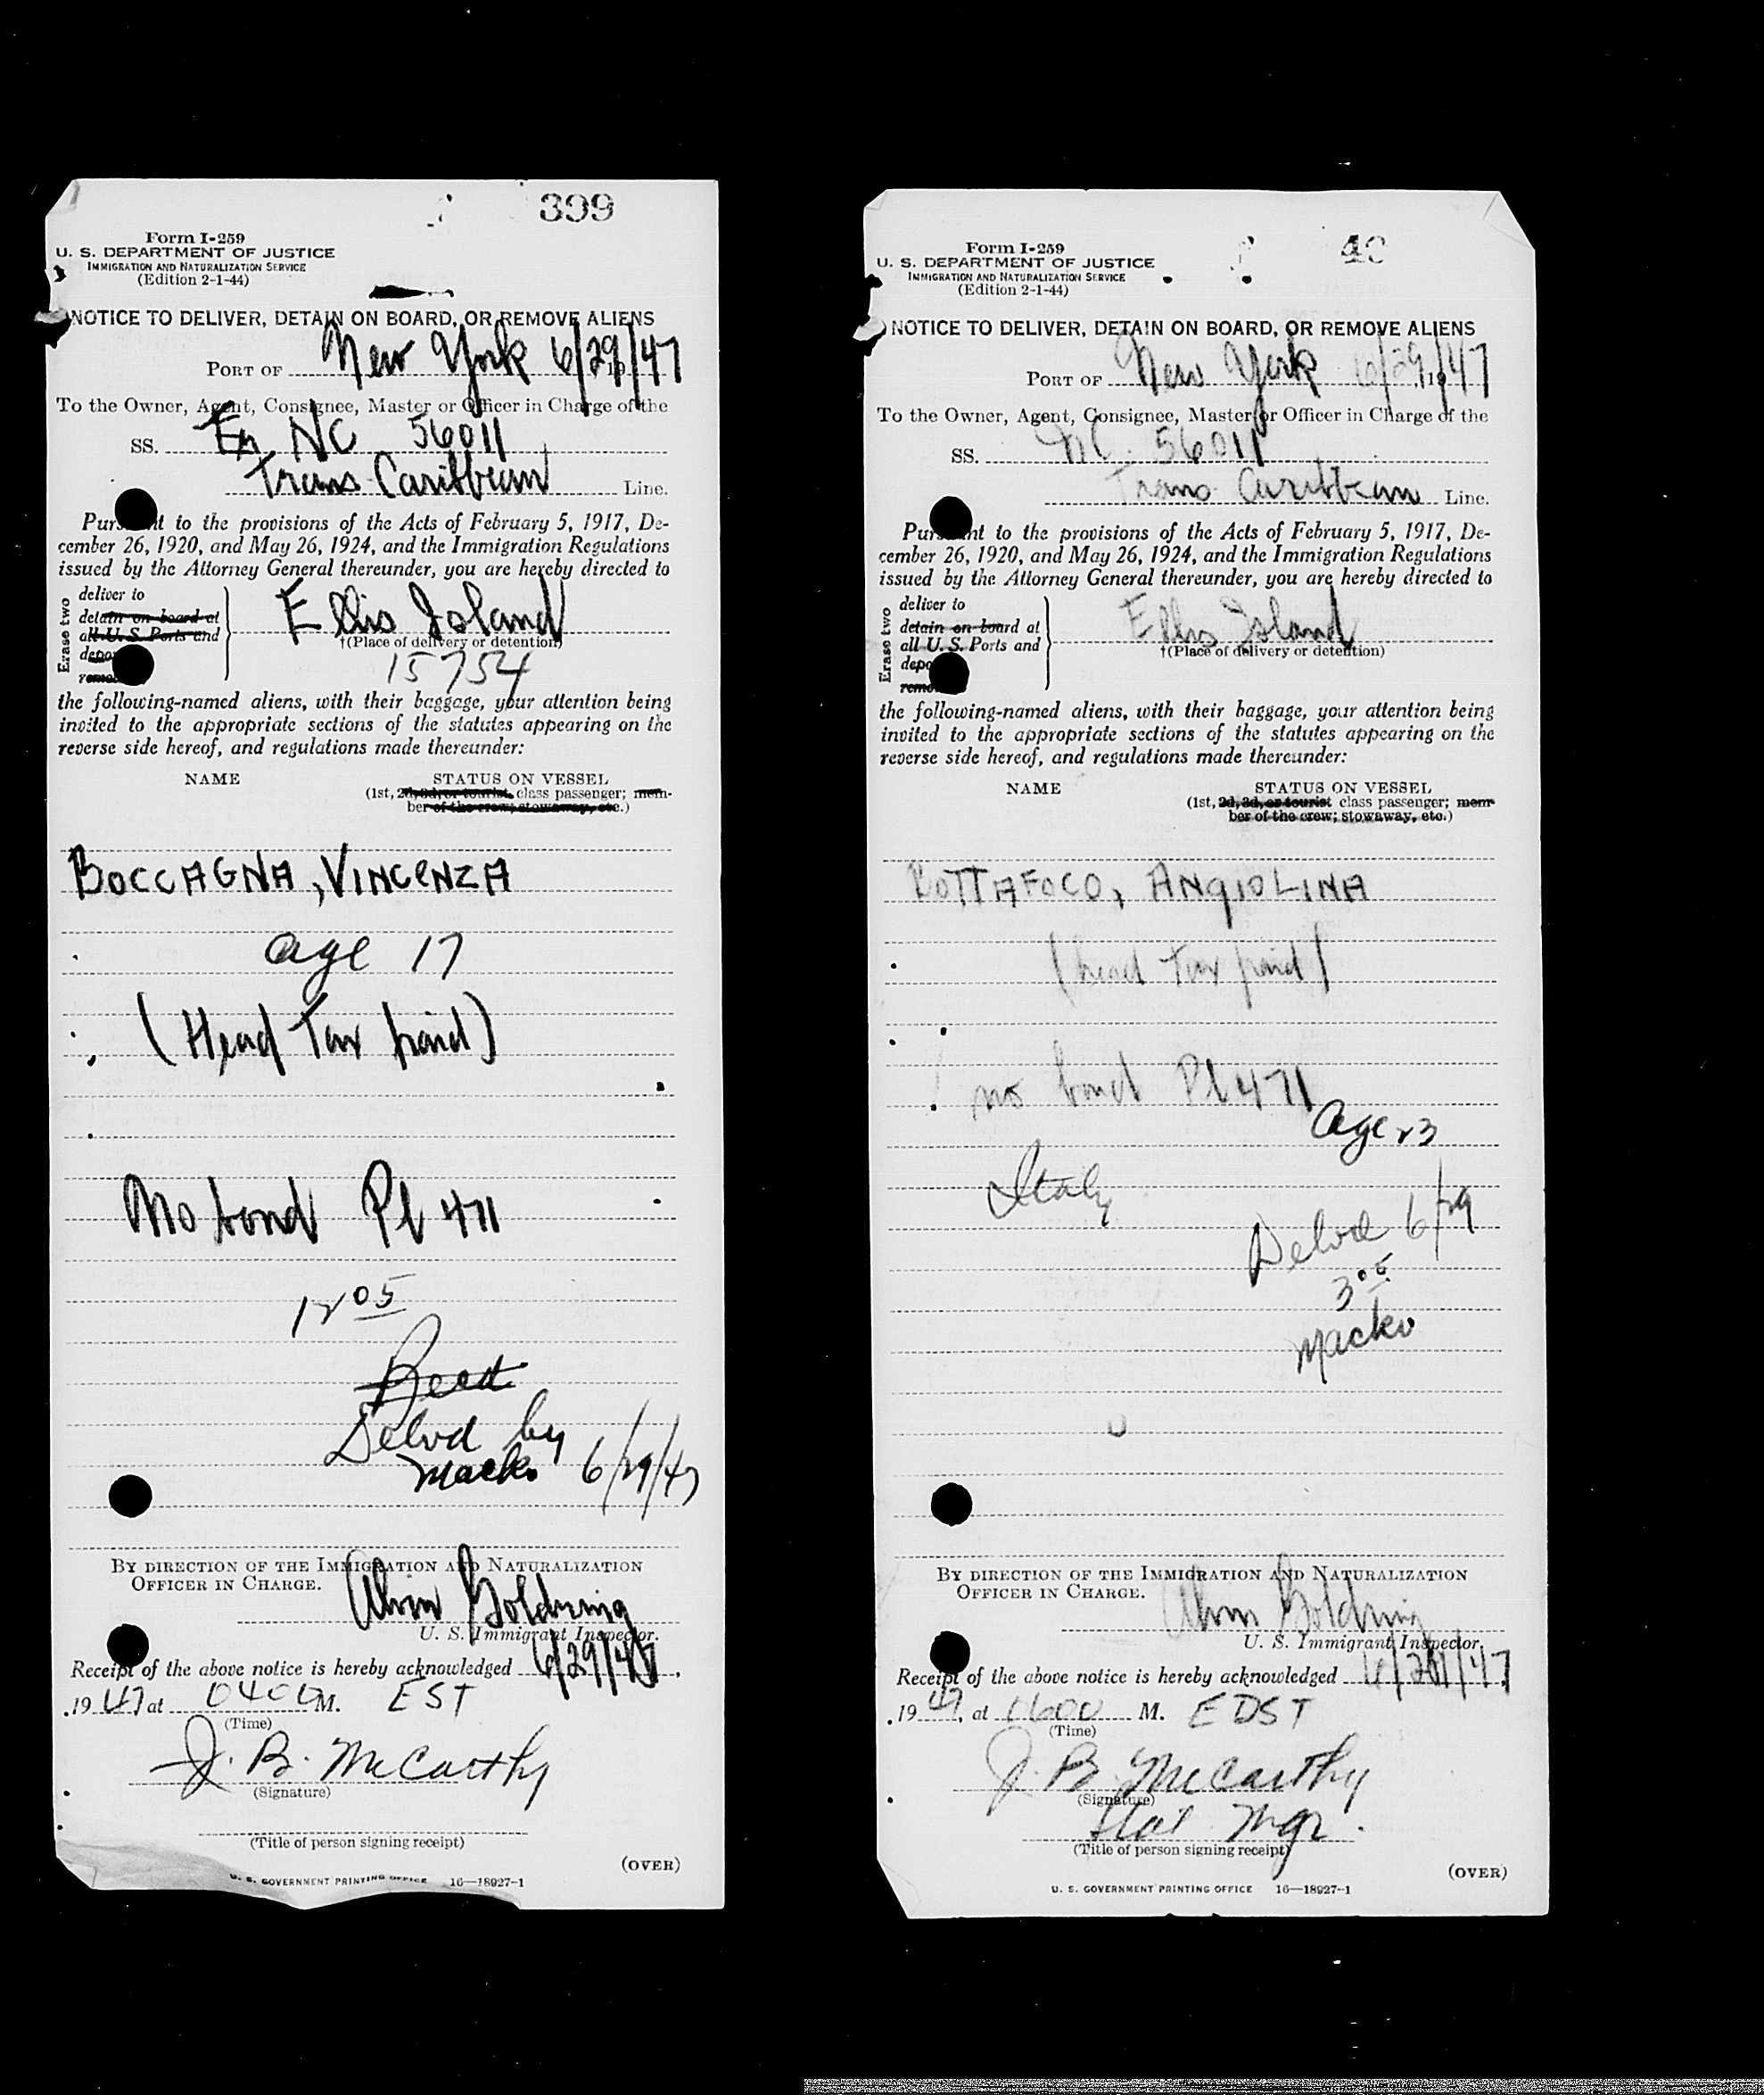 399
Form I-259
U. S. DEPARTMENT OF JUSTICE
IMMIGRATION AND NATURALIZATION SERVICE
(Edition 2-1-44)
NOTICE TO DELIVER, DETAIN ON BOARD, OR REMOVE ALIENS
PORT OF New York 6/29/47
To the Owner, Agent, Consignee, Master or Officer in Charge of the
SS. Ex NC 56011
Trans-Caribbean Line.
Pursuant to the provisions of the Acts of February 5, 1917, De-
cember 26, 1920, and May 26, 1924, and the Immigration Regulations
issued by the Attorney General thereunder, you are hereby directed to
Erase two
deliver to
detain on board at
all U. S. Ports and
Ellis Island
†(Place of delivery or detention)
15754
the following-named aliens, with their baggage, your attention being
invited to the appropriate sections of the statutes appearing on the
reverse side hereof, and regulations made thereunder:
NAME STATUS ON VESSEL
(1st, 2d, 3d, or tourist class passenger; mem-
ber of the crew; stowaway, etc.)
BOCCAGNA, VINCENZA
age 17
(Head Tax paid)
No bond Pl 471
12 05
Delvd by
Macko 6/29/47
BY DIRECTION OF THE IMMIGRATION AND NATURALIZATION
OFFICER IN CHARGE.
Goldring
U. S. Immigrant Inspector.
Receipt of the above notice is hereby acknowledged 6/29/47,
1947 at 0400 M. EST
(Time)
J. B. McCarthy
(Signature)
(Title of person signing receipt)
(OVER)
U. S. GOVERNMENT PRINTING OFFICE 16—18927-1
Form I-259
U. S. DEPARTMENT OF JUSTICE
IMMIGRATION AND NATURALIZATION SERVICE
(Edition 2-1-44)
NOTICE TO DELIVER, DETAIN ON BOARD, OR REMOVE ALIENS
PORT OF New York 6/29/1947
To the Owner, Agent, Consignee, Master or Officer in Charge of the
SS. NC. 56011
Trans-Caribbean Line.
Pursuant to the provisions of the Acts of February 5, 1917, De-
cember 26, 1920, and May 26, 1924, and the Immigration Regulations
issued by the Attorney General thereunder, you are hereby directed to
Erase two
deliver to
detain on board at
all U. S. Ports and
Ellis Island
†(Place of delivery or detention)
the following-named aliens, with their baggage, your attention being
invited to the appropriate sections of the statutes appearing on the
reverse side hereof, and regulations made thereunder:
NAME STATUS ON VESSEL
(1st, 2d, 3d, or tourist class passenger; mem-
ber of the crew; stowaway, etc.)
BOTTAFOCO, ANGIOLINA
(head tax paid)
no bond Pl 471
Age 23
Italy
Delvd 6/29
3 05
Macko
BY DIRECTION OF THE IMMIGRATION AND NATURALIZATION
OFFICER IN CHARGE.
Goldring
U. S. Immigrant Inspector.
Receipt of the above notice is hereby acknowledged 6/29/47,
1947, at 0600 M. EDST
(Time)
J. B. McCarthy
(Signature)
Mgr.
(Title of person signing receipt)
(OVER)
U. S. GOVERNMENT PRINTING OFFICE 16—18927-1